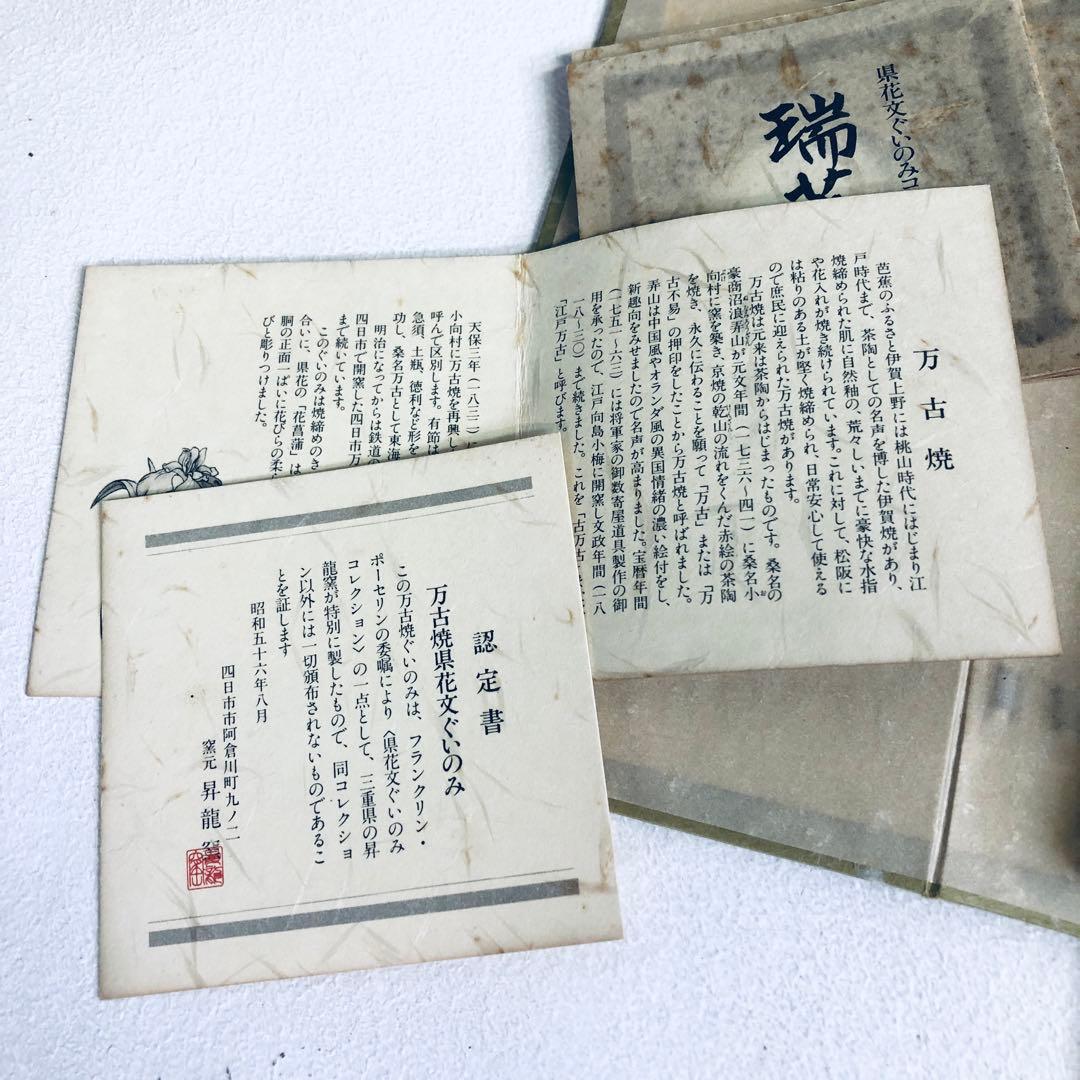 県花文ぐいのみコ
瑞
万古焼
芭蕉のふるさと伊賀上野には桃山時代にはじまり江
戸時代まで、茶陶としての名声を博した伊賀焼があり、
焼締められた肌に自然釉の、荒々しいまでに豪快な水指
や花入れが焼き続けられています。これに対して、松阪に
は粘りのある土が堅く焼締められ、日常安心して使える
ので庶民に迎えられた万古焼があります。
万古焼は元来は茶陶からはじまったものです。桑名の
豪商沼浪弄山が元文年間(一七三六〜四一)に桑名小
向村に窯を築き、京焼の乾山の流れをくんだ赤絵の茶陶
を焼き、永久に伝わることを願って「万古」または「万
古不易」の押印をしたことから万古焼と呼ばれました。
弄山は中国風やオランダ風の異国情緒の濃い絵付をし、
新趣向をみせましたので名声が高まりました。宝暦年間
(一七五一〜六三)には将軍家の御数寄屋道具製作の御
用を承ったので、江戸向島小梅に開窯し文政年間(一八
一八〜三〇)まで続きました。これを「古万古
「江戸万古」と呼びます。
天保三年(一八三二)に
小向村に万古焼を再興し
呼んで区別します。有節は
急須、土瓶、徳利など形を
功し、桑名万古として東海
明治になってからは鉄道の
四日市で開窯した四日市万
まで続いています。
このぐいのみは焼締めのき
合いに、県花の「花菖蒲」は
胴の正面一ぱいに花びらの柔
びと彫りつけました。
認定書
万古焼県花文ぐいのみ
この万古焼ぐいのみは、フランクリン・
ポーセリンの委嘱により〈県花文ぐいのみ
コレクション〉の一点として、三重県の昇
龍窯が特別に製したもので、同コレクショ
ン以外には一切頒布されないものであるこ
とを証します
昭和五十六年八月
四日市市阿倉川町九ノ二
窯元 昇龍窯